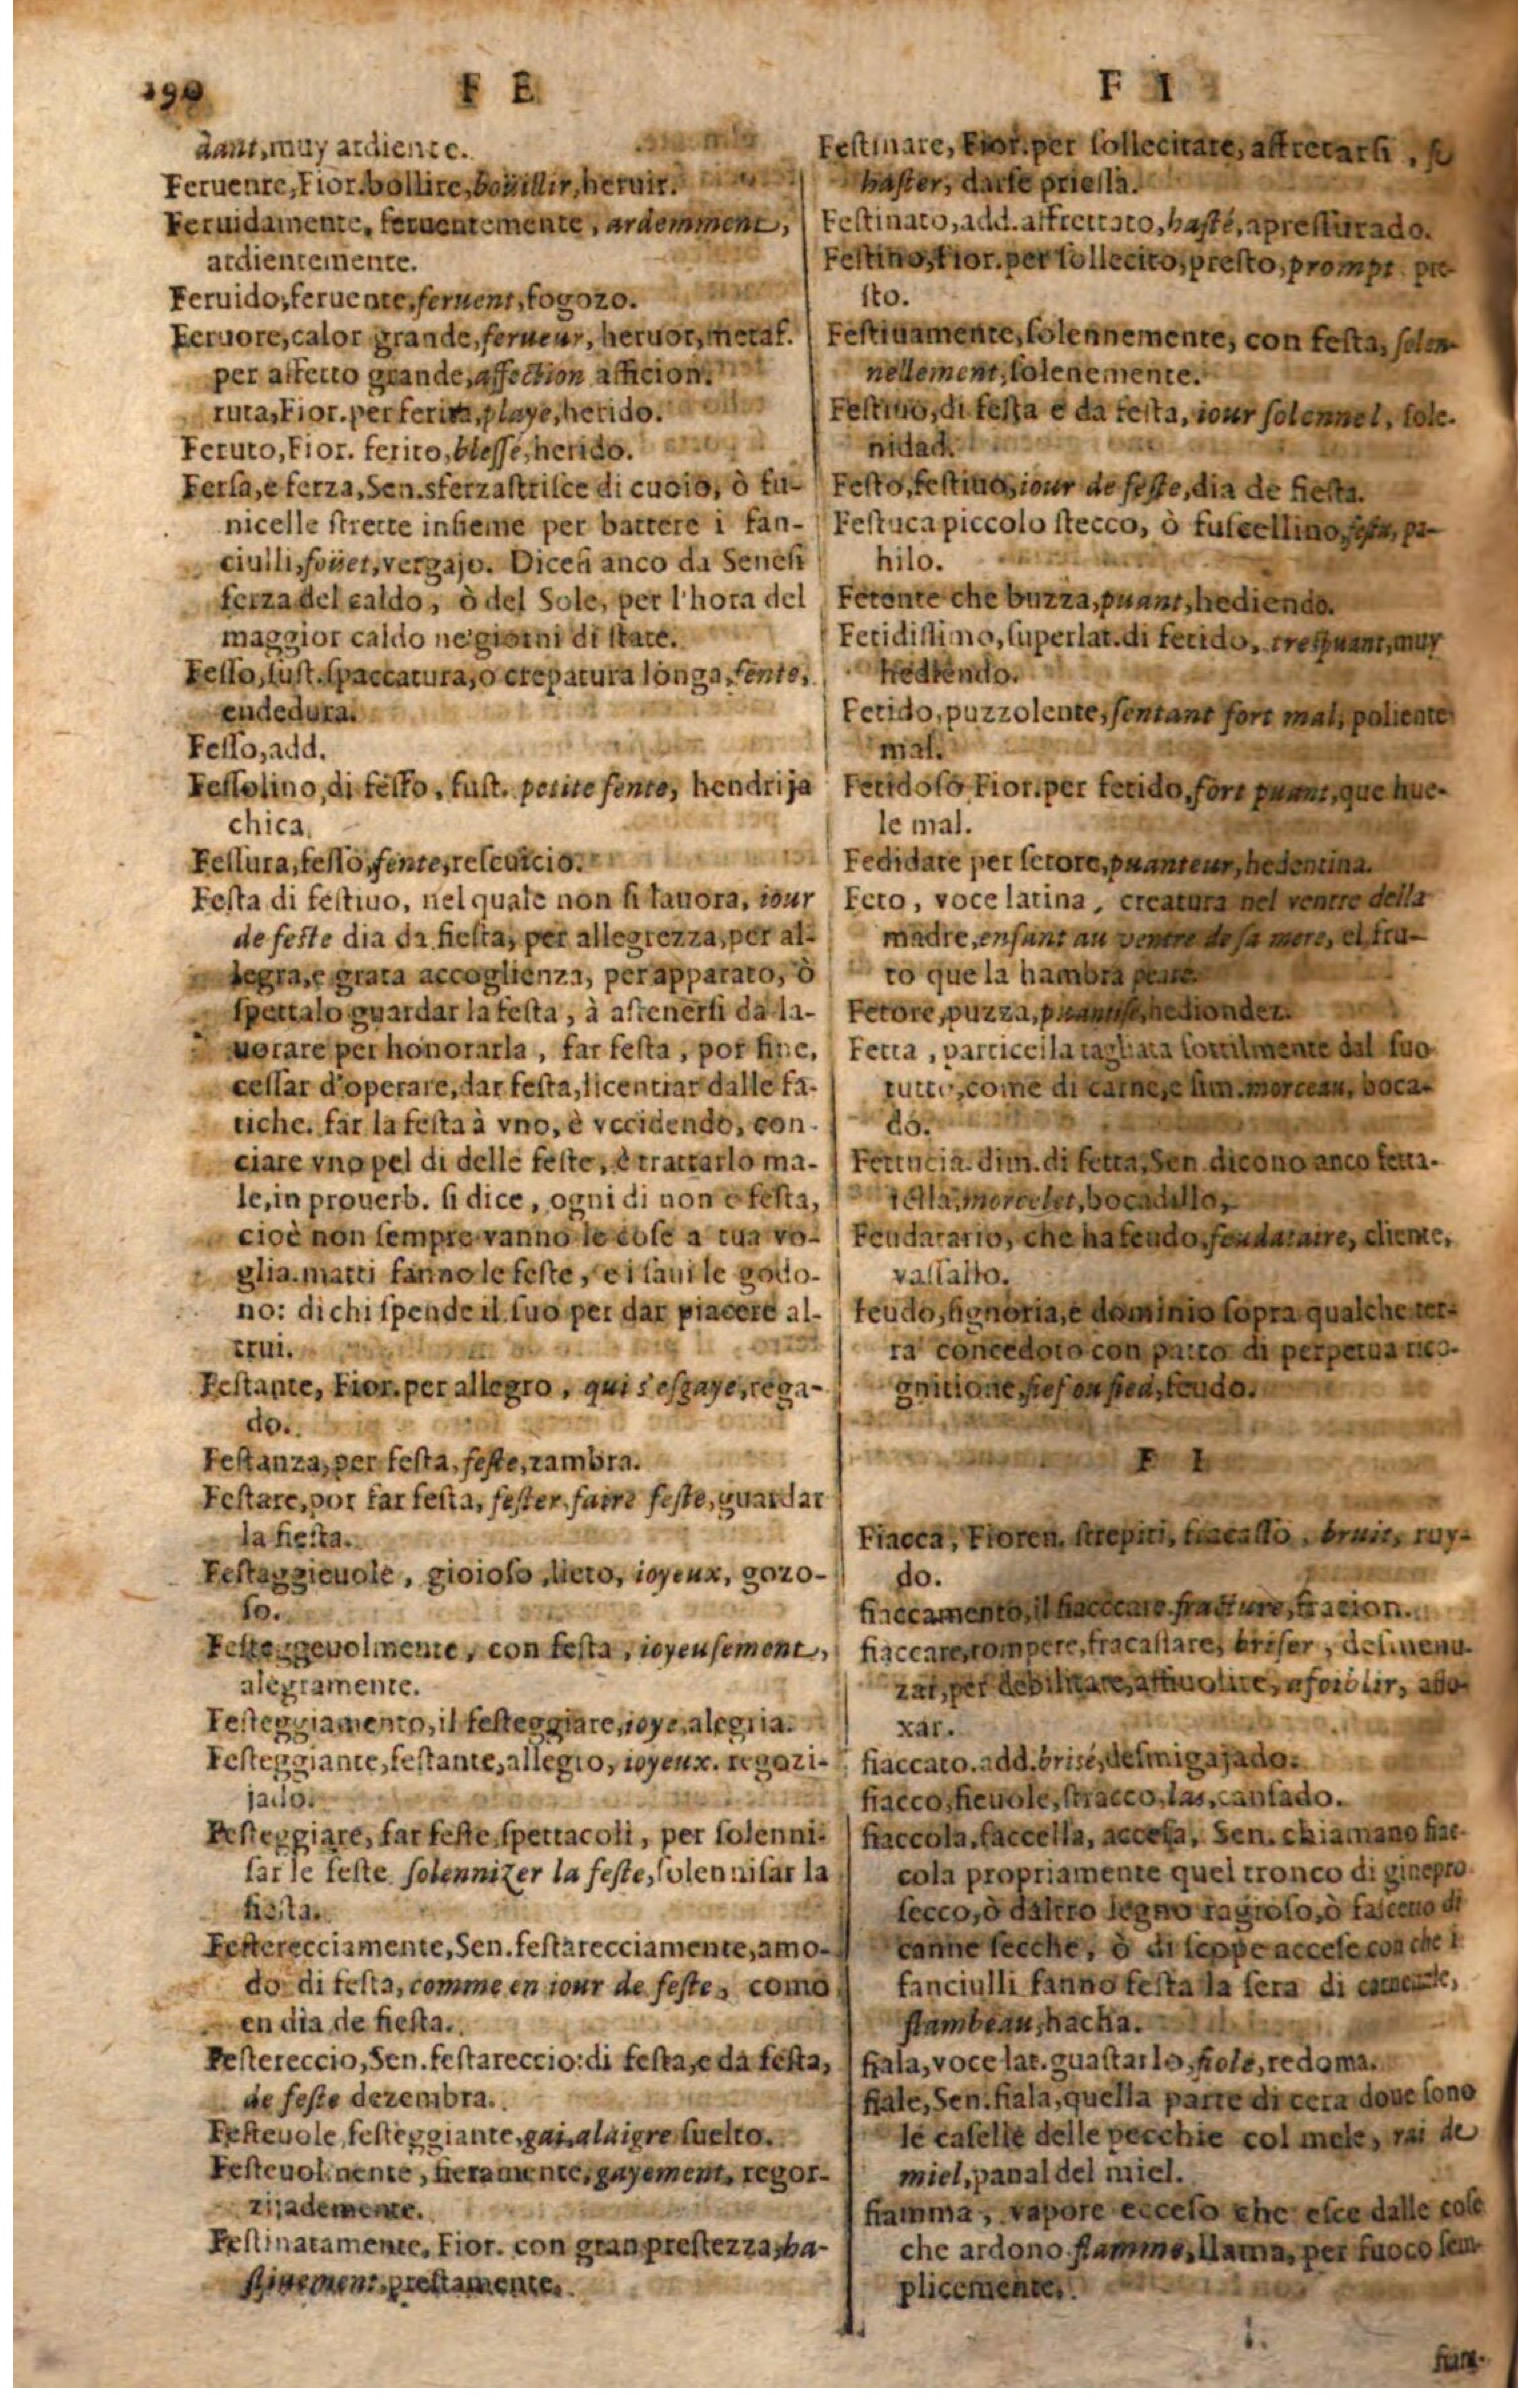 190
F E
dant, muy ardiente.
Feruente, Fior. bollire, boüillir, heruir.
Feruidamente, feruentemente, ardemment,
ardientemente.
Feruido, feruente, feruent, fogozo.
Feruore, calor grande, ferueur, heruor, metaf.
per affetto grande, affection afficion.
ruta, Fior. per ferita, playe, herido.
Feruto, Fior. ferito, blessé, herido.
Fersa, e ferza, Sen. sferza strisce di cuoio, ò fu-
nicelle strette insieme per battere i fan-
ciulli, foüet, vergajo. Dicesi anco da Senesi
ferza del caldo, ò del Sole, per l'hora del
maggior caldo ne'giorni di state.
Fesso, sust. spaccatura, o crepatura longa, fente,
endedura.
Fesso, add.
Fessolino, di fesso, sust. petite fente, hendrija
chica.
Fessura, fesso, fente, rescuicio.
Festa di festiuo, nel quale non si lauora, iour
de feste dia da fiesta, per allegrezza, per al-
legra, e grata accoglienza, per apparato, ò
spettalo guardar la festa, à astenersi da la-
uorare per honorarla, far festa, por fine,
cessar d'operare, dar festa, licentiar dalle fa-
tiche. far la festa à vno, è vccidendo, con-
ciare vno pel di delle feste, è trattarlo ma-
le, in prouerb. si dice, ogni di non e festa,
cioè non sempre vanno le cose a tua vo-
glia. matti fanno le feste, e i saui le godo-
no: di chi spende il suo per dar piacere al-
trui.
Festante, Fior. per allegro, qui s'esgaye, rega-
do.
Festanza, per festa, feste, zambra.
Festare, por far festa, fester, faire feste, guardar
la fiesta.
Festaggieuole, gioioso, lieto, ioyeux, gozo-
so.
Festeggeuolmente, con festa, ioyeusement,
alegramente.
Festeggiamento, il festeggiare, ioye, alegria.
Festeggiante, festante, allegro, ioyeux. regozi-
jado.
Festeggiare, far feste, spettacoli, per solenni-
sar le feste solennizer la feste, solennisar la
fiesta.
Festerecciamente, Sen. festarecciamente, a mo-
do di festa, comme en iour de feste, como
en dia de fiesta.
Festereccio, Sen. festareccio: di festa, e da festa,
de feste dezembra.
Festeuole, festeggiante, gai, alaigre suelto.
Festeuolmente, fieramente, gayement, regor-
zijademente.
Festinatamente, Fior. con gran prestezza, ha-
stiuement, prestamente.
F I
Festinare, Fior. per sollecitare, affretarsi, se
haster, darse priessa.
Festinato, add. affrettato, hasté, apressurado.
Festino, Fior. per sollecito, presto, prompt pre-
sto.
Festiuamente, solennemente, con festa, solen-
nellement, solenemente.
Festiuo, di festa e da festa, iour solennel, sole-
nidad.
Festo, festiuo, iour de feste, dia de fiesta.
Festuca piccolo stecco, ò fuscellino, pa-
hilo.
Fetente che buzza, puant, hediendo.
Fetidissimo, superlat. di fetido, trespuant, muy
hediendo.
Fetido, puzzolente, sentant fort mal, poliente
mal.
Fetidoso, Fior. per fetido, fort puant, que hue-
le mal.
Fedidate per fetore, puanteur, hedentina.
Feto, voce latina, creatura nel ventre della
madre, enfant au ventre de sa mere, el fru-
to que la hambra
Fetore, puzza, puantise, hediondez.
Fetta, particella tagliata sottilmente dal suo
tutto, come di carne, e sim. morceau, boca-
do.
Fettucia. dim. di fetta, Sen. dicono anco fetta-
rella, morcelet, bocadillo,
Feudatario, che ha feudo, feudataire, cliente,
vassallo.
feudo, signoria, e dominio sopra qualche ter-
ra concedoto con patto di perpetua rico-
gnitione, fief ou fied, feudo.
F I
Fiacca, Fioren. strepiti, fracasso, bruit, ruy-
do.
fiaccamento, il fiaccare, fracture, fracion.
fiaccare, rompere, fracassare, briser, desmenu-
zar, per debilitare, affiuolire, afoiblir, aflo-
xar.
fiaccato. add. brisé, desmigajado.
fiacco, fieuole, stracco, las, cansado.
fiaccola, faccella, accesa, Sen. chiamano fiac-
cola propriamente quel tronco di ginepro
secco, ò d'altro legno ragioso, ò fascetto di
canne secche, ò di scope accese con che i
fanciulli fanno festa la sera di
flambeau, hacha.
fiala, voce lat. guastarlo, fiole, redoma.
fiale, Sen. fiala, quella parte di cera doue sono
le caselle delle pecchie col mele, rai de
miel, panal del miel.
fiamma, vapore ecceso che esce dalle cose
che ardono flamme, llama, per fuoco sem-
plicemente.